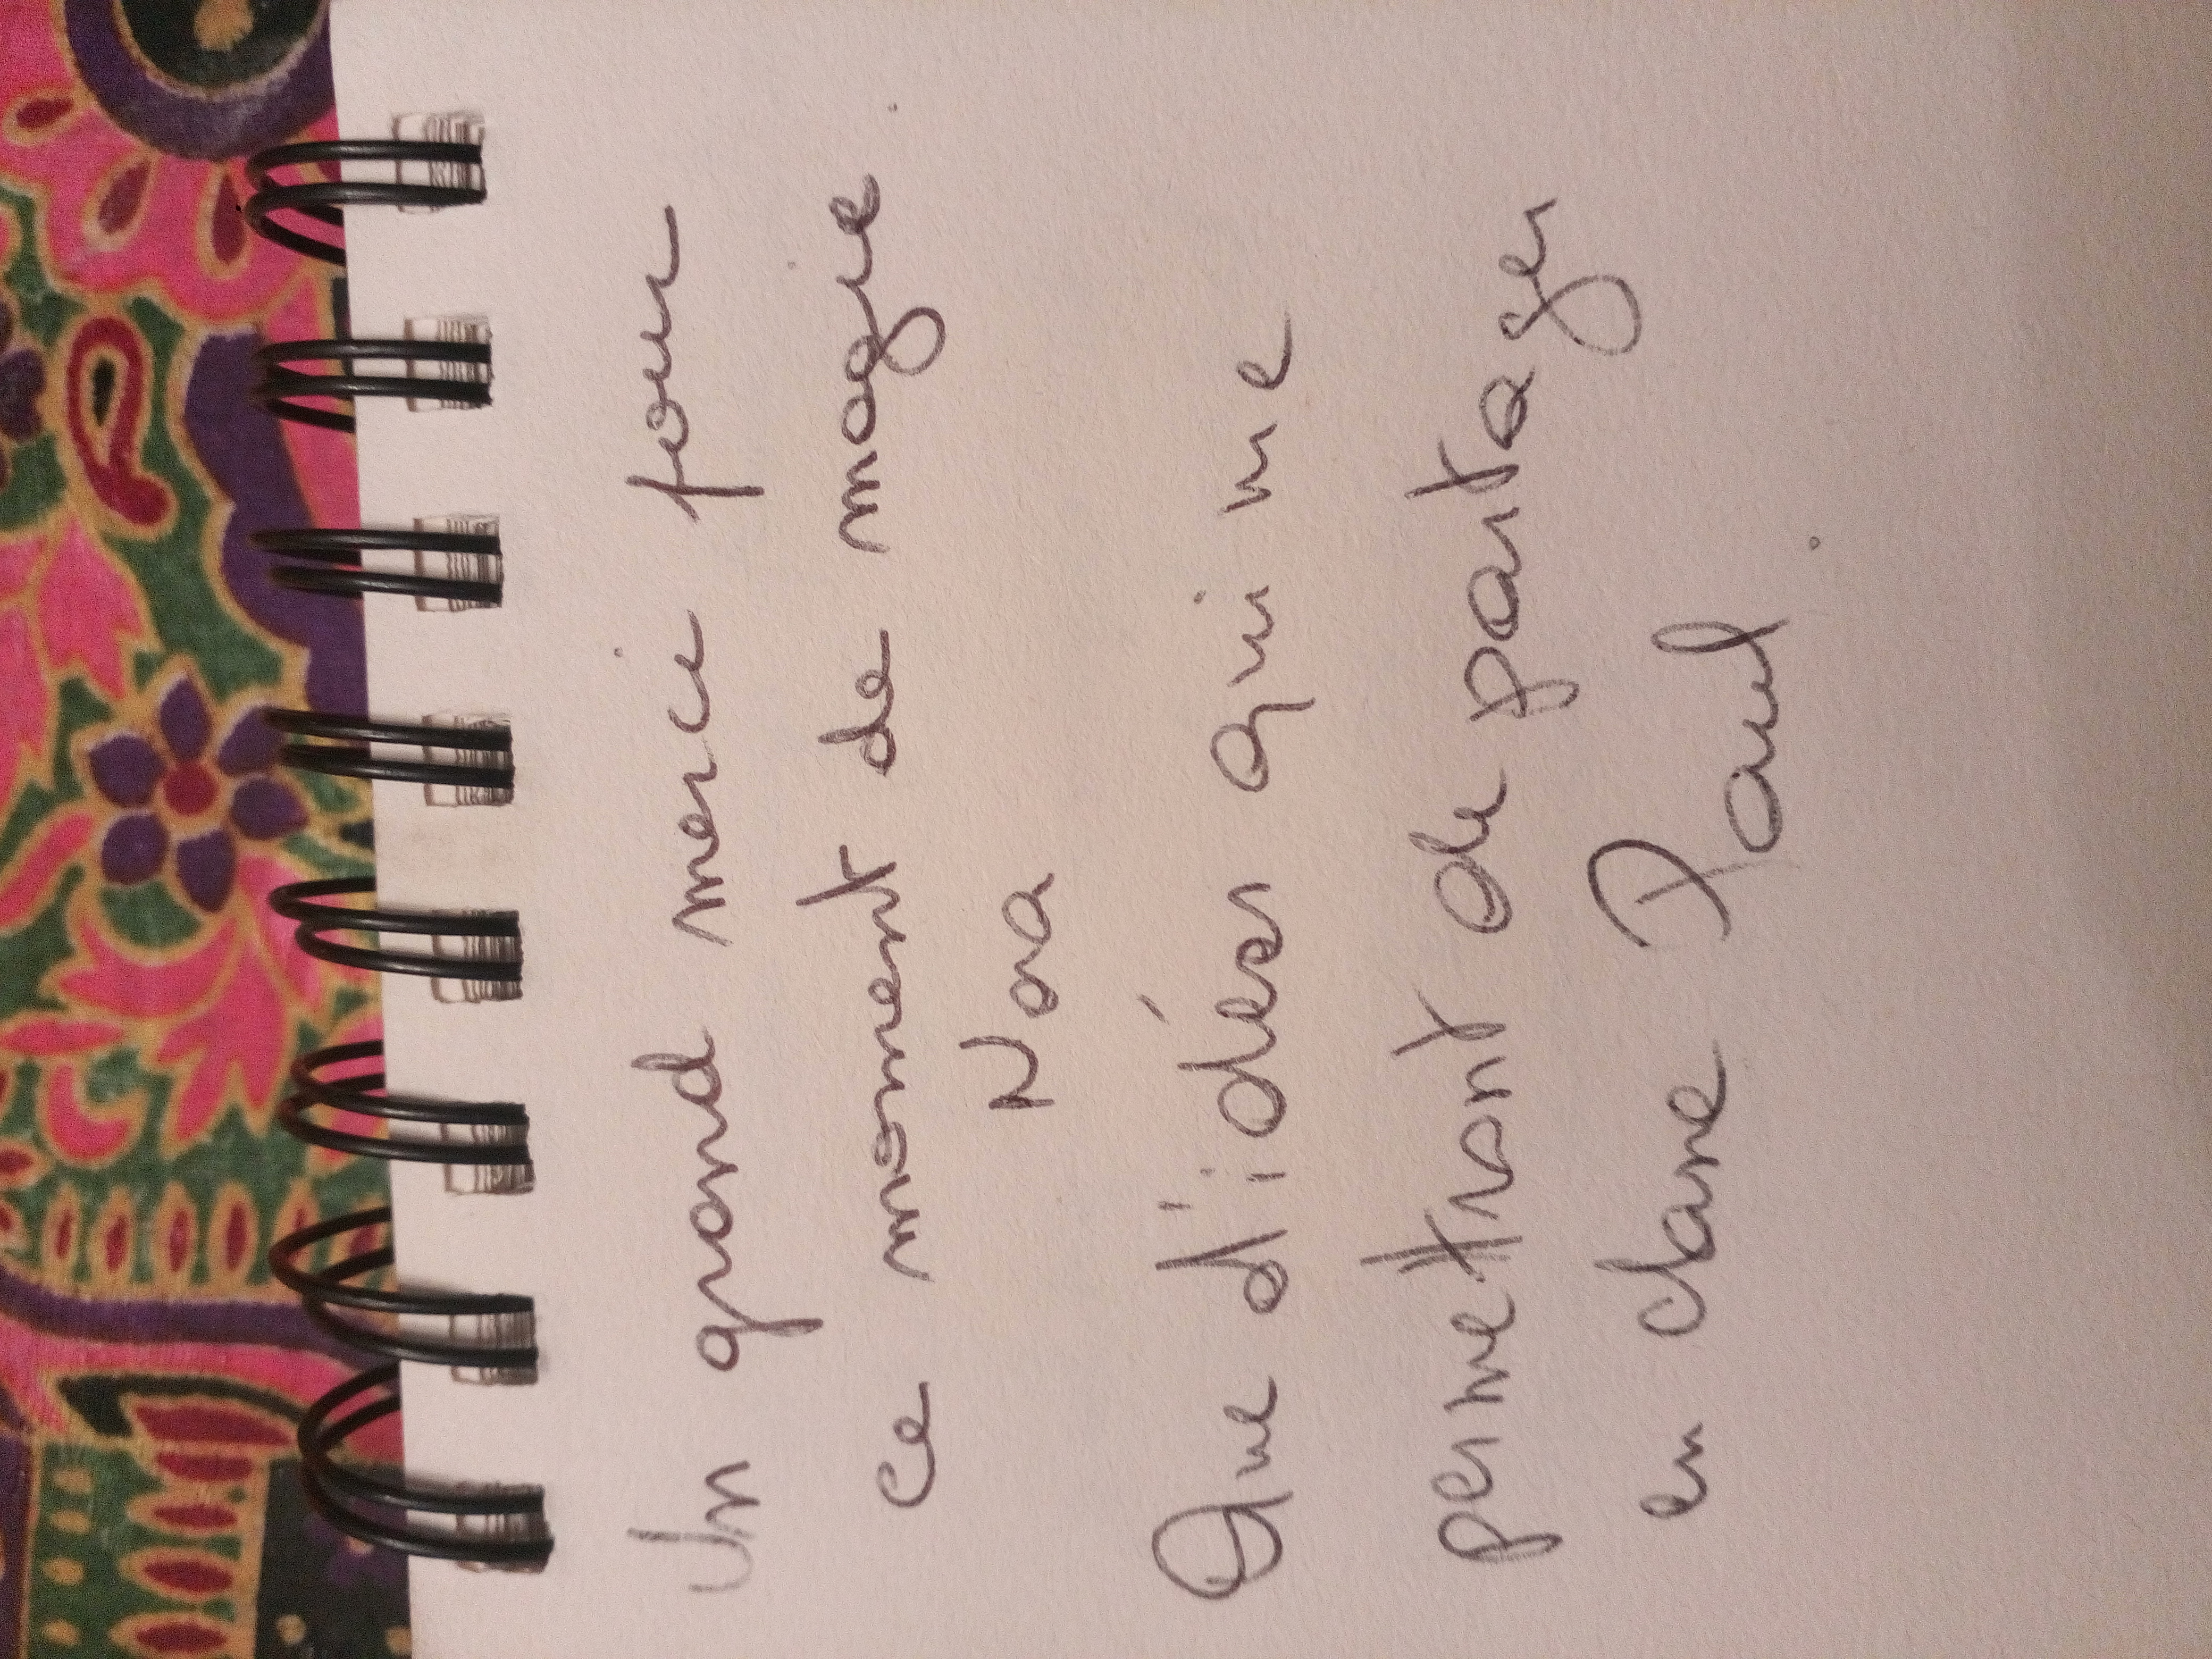 Un grand merci pour
ce moment de magie.
Nora
Que d'idées qui me
permettront de partager
en classe Paul.